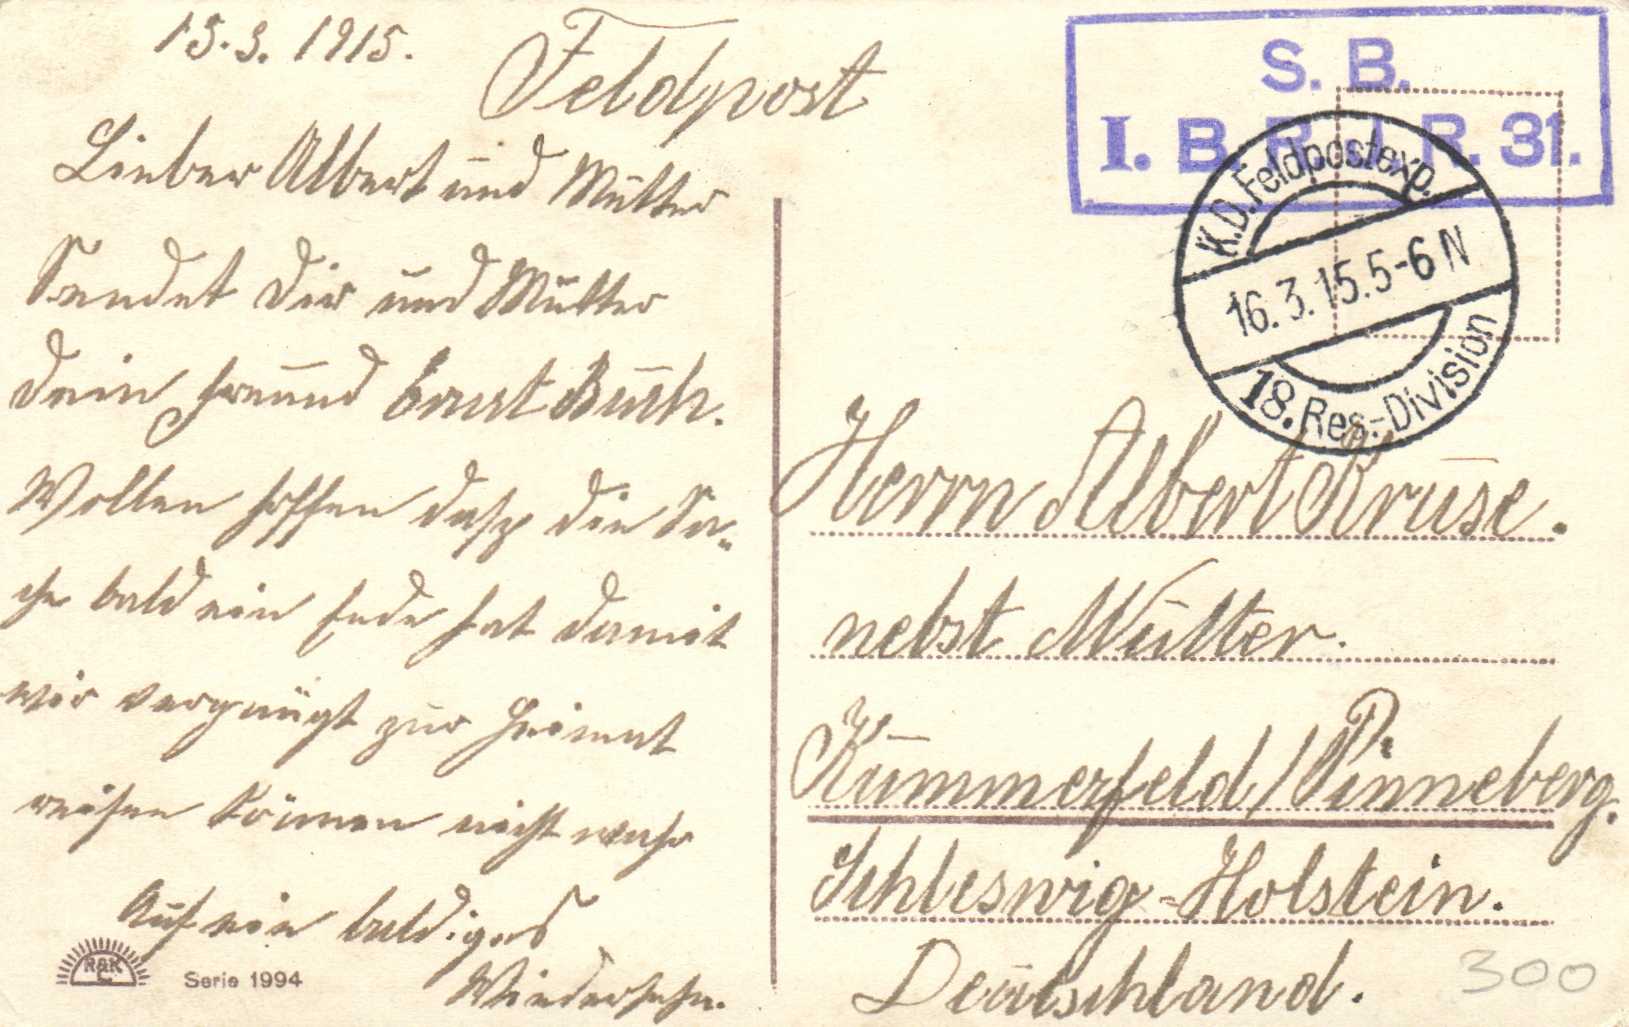 15.3.1915.
Feldpost
Lieber Albert und Mutter
Sendet Dir und Mutter
dein Freund Ernst Busch.
Wollen hoffen dasz die Sa-
che bald ein Ende hat damit
wir vergnügt zur Heimat
reisen können nicht wahr
Auf ein baldiges
Wiedersehn.
R&K
L
Serie 1994
S. B.
I. B. R. I. R. 31.
K.D. Feldpostexp.
16.3.15.5-6N
18. Res.-Division
Herrn Albert Kruse.
nebst Mutter.
Kummerfeld/Pinneberg.
Schleswig-Holstein.
Deutschland.
300